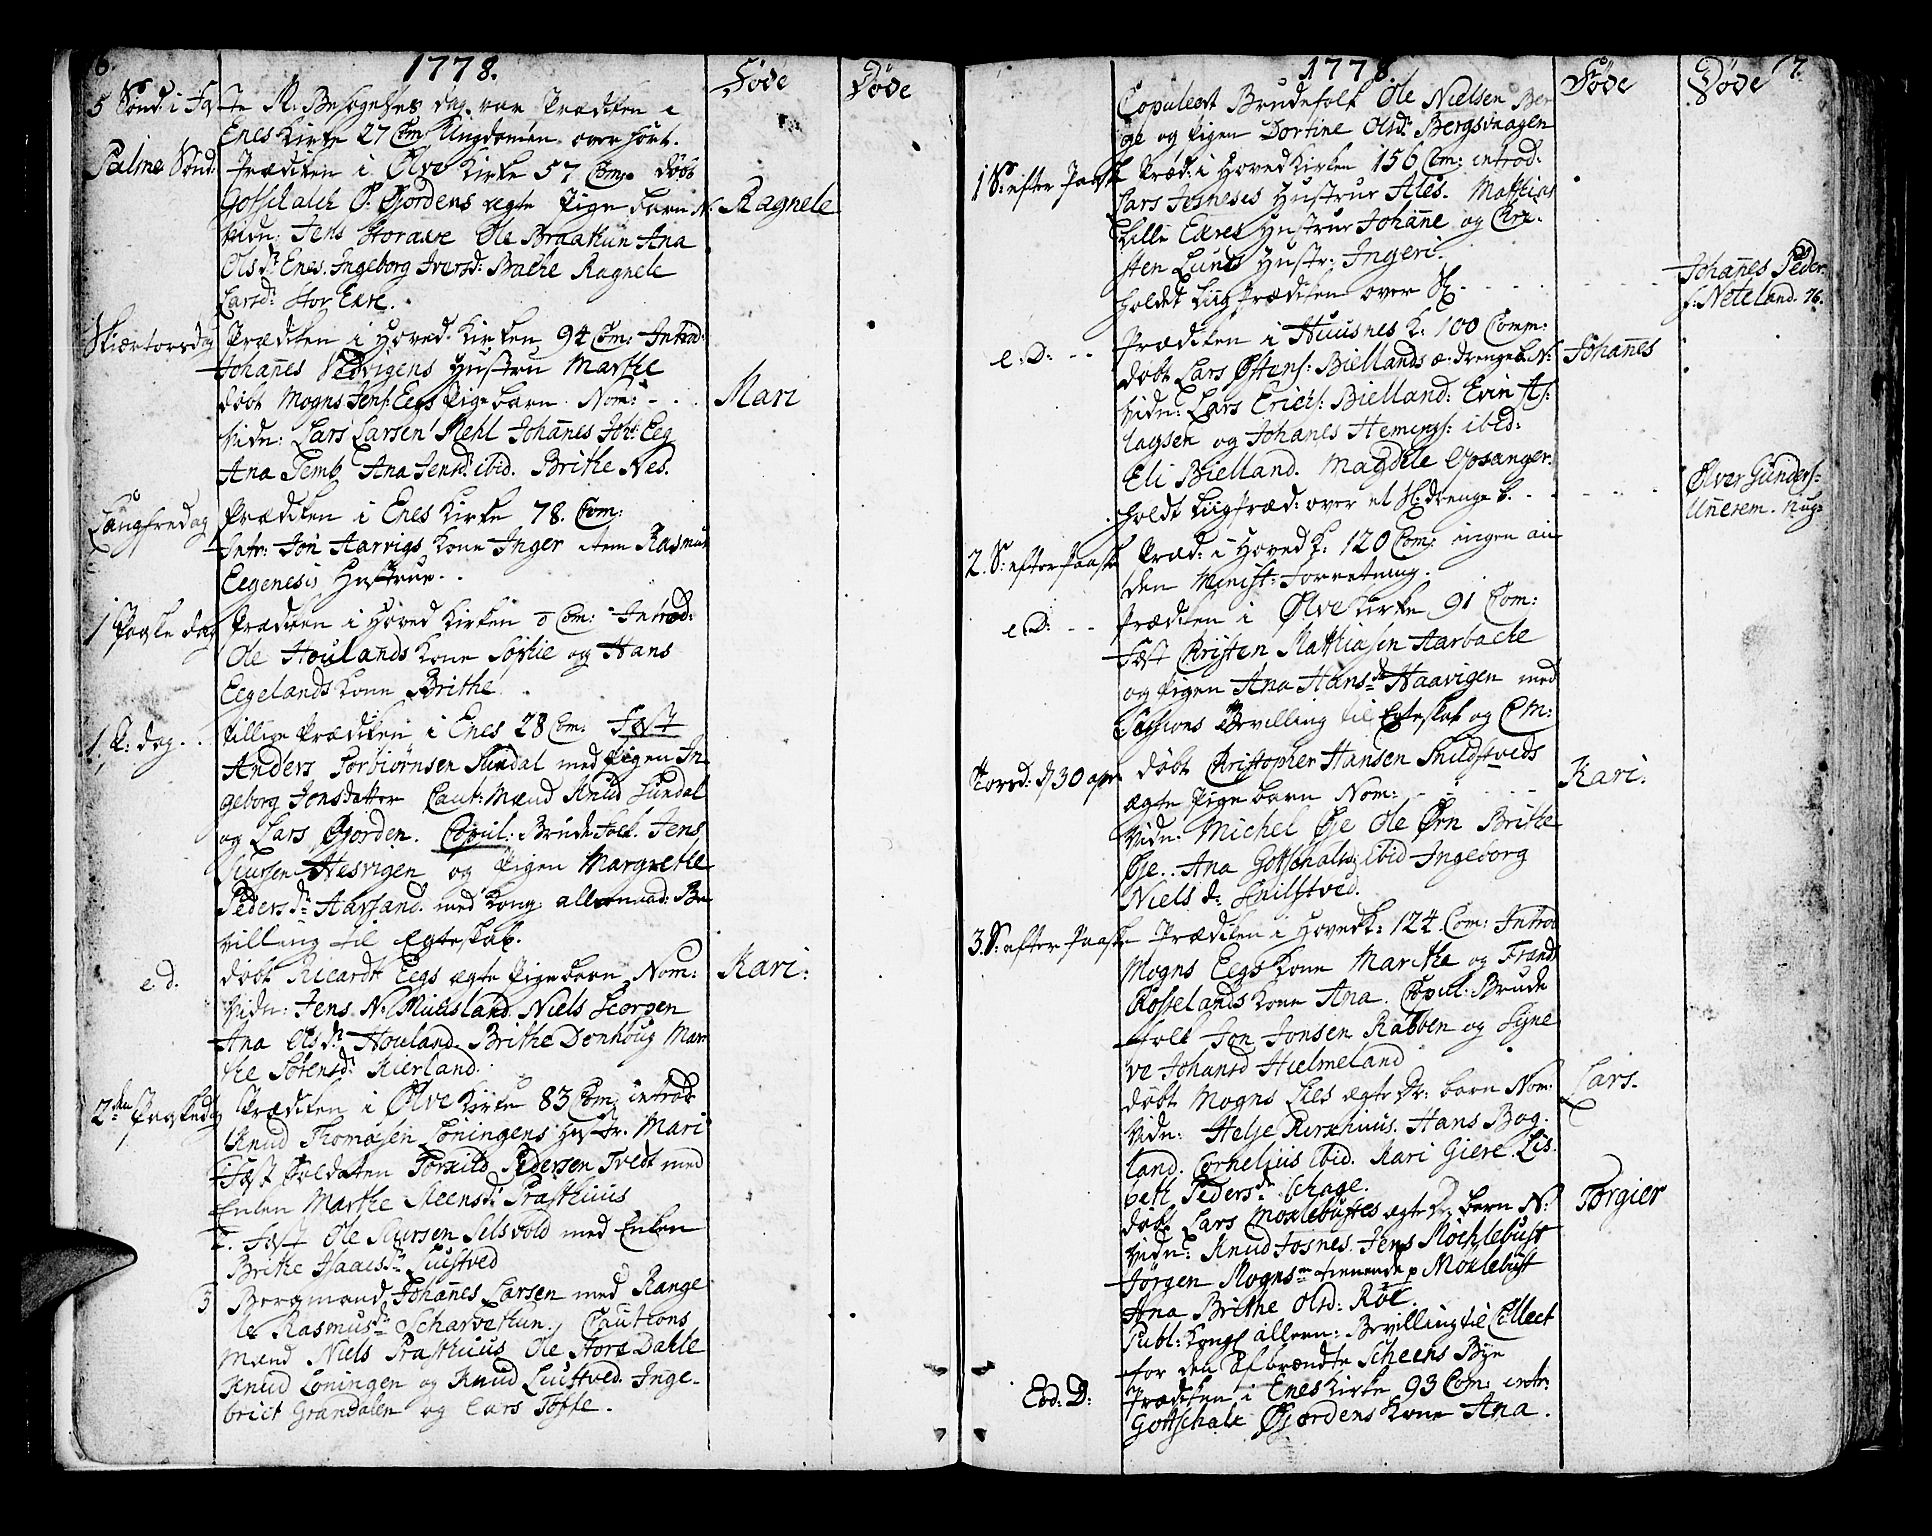 6.
1778.
Føde
Døde
5 Sønd: i Fa
ste M: Besøgelses dag. var Prædiken i
Enes Kirke 27 Com: Ungdomen overhørt.
Palme Sønd:
Prædiken i Ølve Kirke 57 Com: døbt
Gotschalck Ø: Gjordens ægte Pige barn N:
Ragnele
vidn: Jens Ole Braathun Ana
Olsdr Enes. Ingeborg Iversd: Bache Ragnele
Larsdr Stor Exre.
Skiærtorsdag
Prædiken i Hoved Kirken 94 Com: Introd:
Johanes Vedvigens Hustru Marthe
døbt Mogns Jens: Eegs Pige barn. Nom: - .
Mari
Vidn: Lars Larsen Mehl Johanes Joh: Eeg
Ana Temb Ana Jensdr ibid. Brithe Nes.
Langfredag
Prædiken i Enes Kirke 78. Com:
Intr: Jon Aarvigs Kone Inger item Rasmus
Eegenesis Hustrue. .
1 Paaske dag
Prædiken i Hoved Kirken 0 Com: Introd:
Ole Houlands Kone Sophie og Hans
Eegelands Kone Brithe
1. P: dag. .
tillige Prædiken i Enes 28 Com: Fæst
Anders Torbiørnsen Sundal med Pigen In
geborg Jonsdatter Caut: Mænd Knud Sundal
og Lars Gjorden. Copul: Brude Folk. Jens
Siursen Hesvigen og Pigen Margrethe
Pedersdr Aarsand. med Kong: allernaad: Be
villing til Egteskab.
e.d.
døbt Ricardt Eegs ægte Pige barn Nom:
Kari:
Vidn: Jens N: Muusland Niels Georgen
Ana Olsdr Houland Brithe Donhoug Mar
the Sørensdr Kierland.
2den Paaskedag
Prædiken i Ølve Kirke 83 Com: introd
Knud Thomasen Løningens Hustr. Mari
Fæst Soldaten Torkild Pedersen Tvedt med
Enken Marthe Steensdr Prasthuus
2. Fæst Ole Siursen Selsvold med Enken
Brithe Isaacsdr Luustved
3 Bergmand Johanes Larsen med Range
le Rasmusdr Scharvethun. Cautions
Mænd Niels Prasthuus Ole Store Dahle
Knud Løningen og Knud Luustved. Inge-
brict Grandalen og Lars Toffte.
1778
Føde
Døde
17.
Copuleert Brudefolk Ole Nielsen Ber
ge og Pigen Dortine Olsdr Bergsvaagen
1 S: efter Paaske
Præd: i Hoved Kirken 156 Com: introd:
Lars Josneses Hustrue Ales. Mathias
Lille Exres Hustrue Johane og Chri-
sten Lunds Hustr: Ingeri.
holdet Liigprædiken over
Johanes Peder
s: Neteland. 76.
e:D: - -
Prædiken i Huusnes K: 100 Comm:
døbt Lars Østens: Biellands æ. drengeb. N:
Johanes
Vidn: Lars Ericks: Bielland: Evin As:
lagsen og Johanes Hemings: ibid:
Eli Bielland. Magdele Opsanger:
holdt Liigpræd: over et drenge b.
Ølver Gunders:
Unerem.
2. S: efter Paaske
Præd: i Hoved K: 120 Com: ingen an
den Minist: Forretning.
e.D: - -
Prædiken i Ølve Kirke 91 Com:
Fæst Christen Mathiasen Aarbache
og Pigen Ana Hansdr Haavigen med
Bevilling til Egteskab og CM:
Torsd: d 30 apr.
døbt Christopher Hansen Snildstveds
ægte Pige barn Nom: - -
Kari:
Vidn: Michel Øje Ole Ørn Brithe
Øje. Ana Gotschalksd ibid Ingeborg
Nielsdr Snilstved.
3. S: efter Paaske
Prædiken i Hovedk: 124 Com: Introd
Mogns Eegs Kone Marthe og Frands
Røsselands Kone Ana. Copul: Brude
folk Jon Jonsen Rabben og Syne
ve Johansd Hielmeland
døbt Mogns Lies ægte Dr: barn Nom:
Lars.
Vidn: Helje Kirkhuus. Hans Bog
land. Cornelius ibid. Kari Giere. Lis
beth Pedersdr Schage.
døbt Lars Moxlebustes ægte Dr: barn N:
Torgier
Vidn: Knud Josnes. Jens Mochlebust
Jørgen Mogns: tienende p Moxlebust
Ana Brithe Olsd: Røe.
Publ: Kongl allern: Bevilling til Collect
for den afbrændte Scheens Bye
Eod: D:
Prædiken i Enes Kirke 93 Com: intr:
Gottschalk Gjordens Kone Ana.